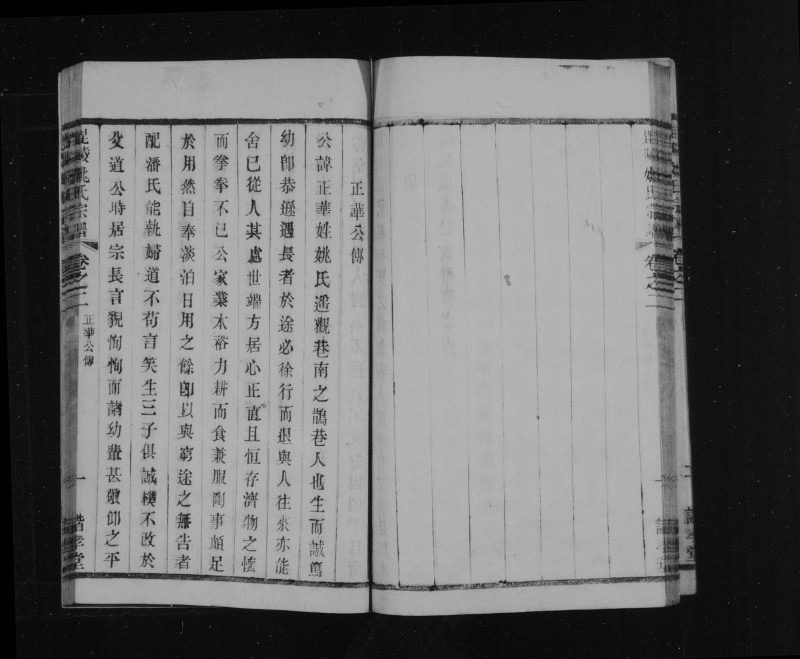 正華公傳
公諱正華姓姚氏遥觀巷南之鵲巷人也生而誠篤
幼即恭遜遇長者於途必徐行而退與人往來亦能
舍已從人其處世端方居心正直且恒存濟物之懷
而拳拳不已公家業未裕力耕而食兼服陶事頗足
於用然自奉淡泊日用之餘卽以與窮途之無告者
配潘氏能執婦道不苟言笑生三子俱誠樸不改於
父道公時居宗長言貌恂恂而諸幼輩甚敬仰之平
毘陵姚氏宗譜
卷之二
正華公傳
一
諧孝堂